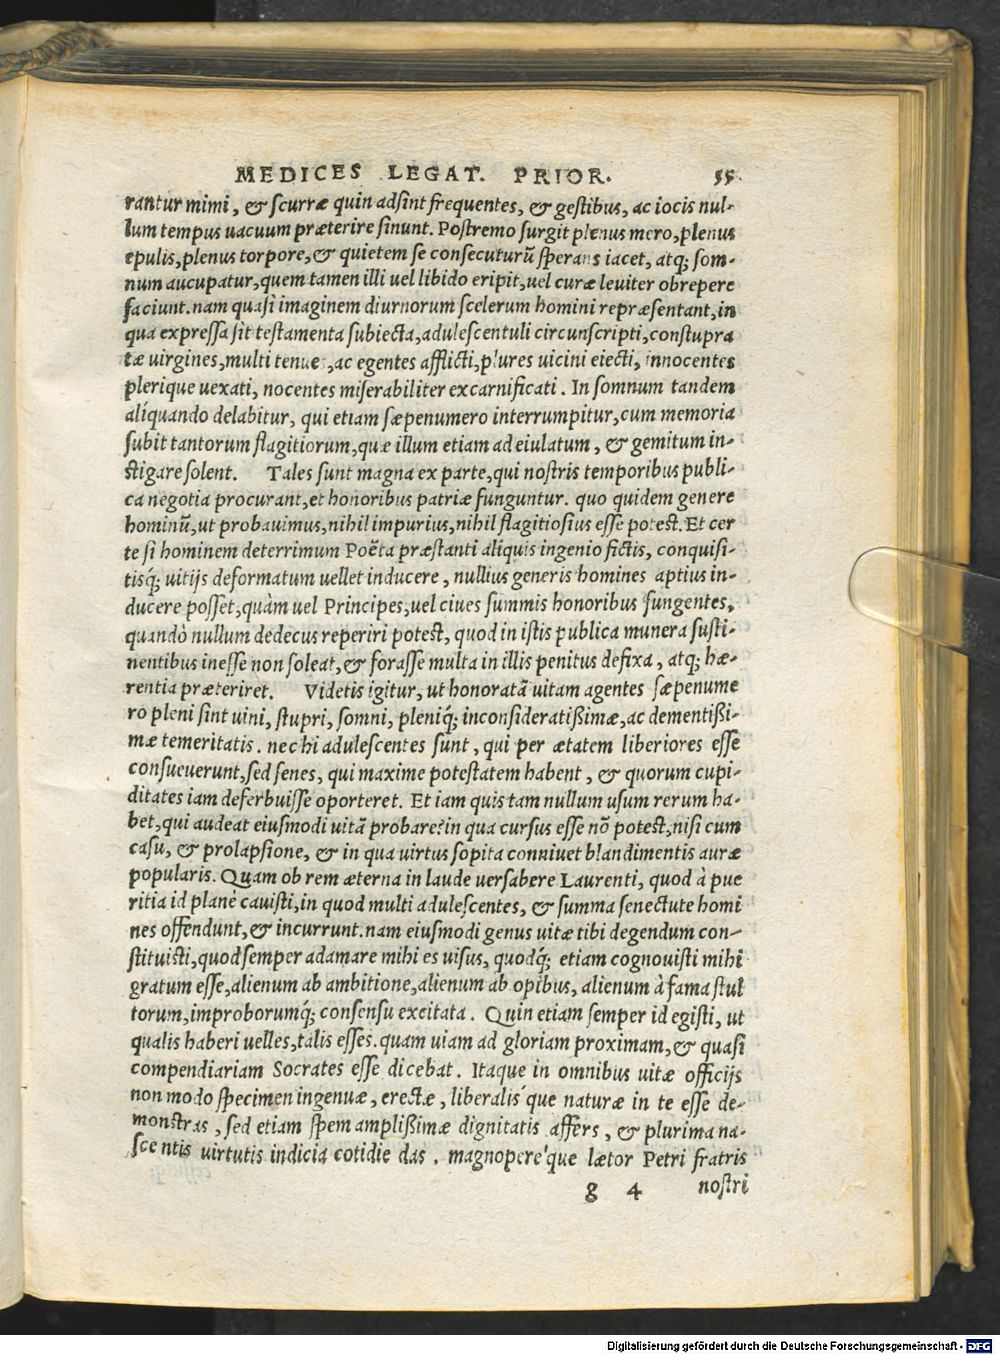 MEDICES LEGAT. PRIOR. 55
rantur mimi, & scurræ quin adsint frequentes, & gestibus, ac iocis nul-
lum tempus uacuum præterire sinunt. Postremo surgit plenus mero, plenus
epulis, plenus torpore, & quietem se consecuturū sperans iacet, atq; som-
num aucupatur, quem tamen illi uel libido eripit, uel curæ leuiter obrepere
faciunt. nam quasi imaginem diurnorum scelerum homini repræsentant, in
qua expressa sit testamenta subiecta, adulescentuli circunscripti, constupra
tæ uirgines, multi tenues, ac egentes afflicti, plures uicini eiecti, innocentes
plerique uexati, nocentes miserabiliter excarnificati. In somnum tandem
aliquando delabitur, qui etiam sæpenumero interrumpitur, cum memoria
subit tantorum flagitiorum, quæ illum etiam ad eiulatum, & gemitum in-
stigare solent. Tales sunt magna ex parte, qui nostris temporibus publi-
ca negotia procurant, et honoribus patriæ funguntur. quo quidem genere
hominū, ut probauimus, nihil impurius, nihil flagitiosius esse potest. Et cer
te si hominem deterrimum Poëta præstanti aliquis ingenio fictis, conquisi-
tisq́; uitijs deformatum uellet inducere, nullius generis homines aptius in-
ducere posset, quàm uel Principes, uel ciues summis honoribus fungentes,
quandò nullum dedecus reperiri potest, quod in istis publica munera susti-
nentibus inesse non soleat, & forasse multa in illis penitus defixa, atq; hæ-
rentia præteriret. Videtis igitur, ut honoratā uitam agentes sæpenume
ro pleni sint uini, stupri, somni, pleniq́; inconsideratißimæ, ac dementißi-
mæ temeritatis. nec hi adulescentes sunt, qui per ætatem liberiores esse
consueuerunt, sed senes, qui maxime potestatem habent, & quorum cupi-
ditates iam deferbuisse oporteret. Et iam quis tam nullum usum rerum ha-
bet, qui audeat eiusmodi uitā probare? in qua cursus esse nō potest, nisi cum
casu, & prolapsione, & in qua uirtus sopita conniuet blandimentis auræ
popularis. Quam ob rem æterna in laude uersabere Laurenti, quod à pue
ritia id planè cauisti, in quod multi adulescentes, & summa senectute homi
nes offendunt, & incurrunt. nam eiusmodi genus uitæ tibi degendum con-
stituisti, quod semper adamare mihi es uisus, quodq́; etiam cognouisti mihi
gratum esse, alienum ab ambitione, alienum ab opibus, alienum à fama stul
torum, improborumq́; consensu excitata. Quin etiam semper id egisti, ut
qualis haberi uelles, talis esses. quam uiam ad gloriam proximam, & quasi
compendiariam Socrates esse dicebat. Itaque in omnibus uitæ officijs
non modo specimen ingenuæ, erectæ, liberalis'que naturæ in te esse de-
monstras, sed etiam spem amplißimæ dignitatis affers, & plurima na-
scentis uirtutis indicia cotidie das. magnopere'que lætor Petri fratris
g 4 nostri
Digitalisierung gefördert durch die Deutsche Forschungsgemeinschaft - DFG